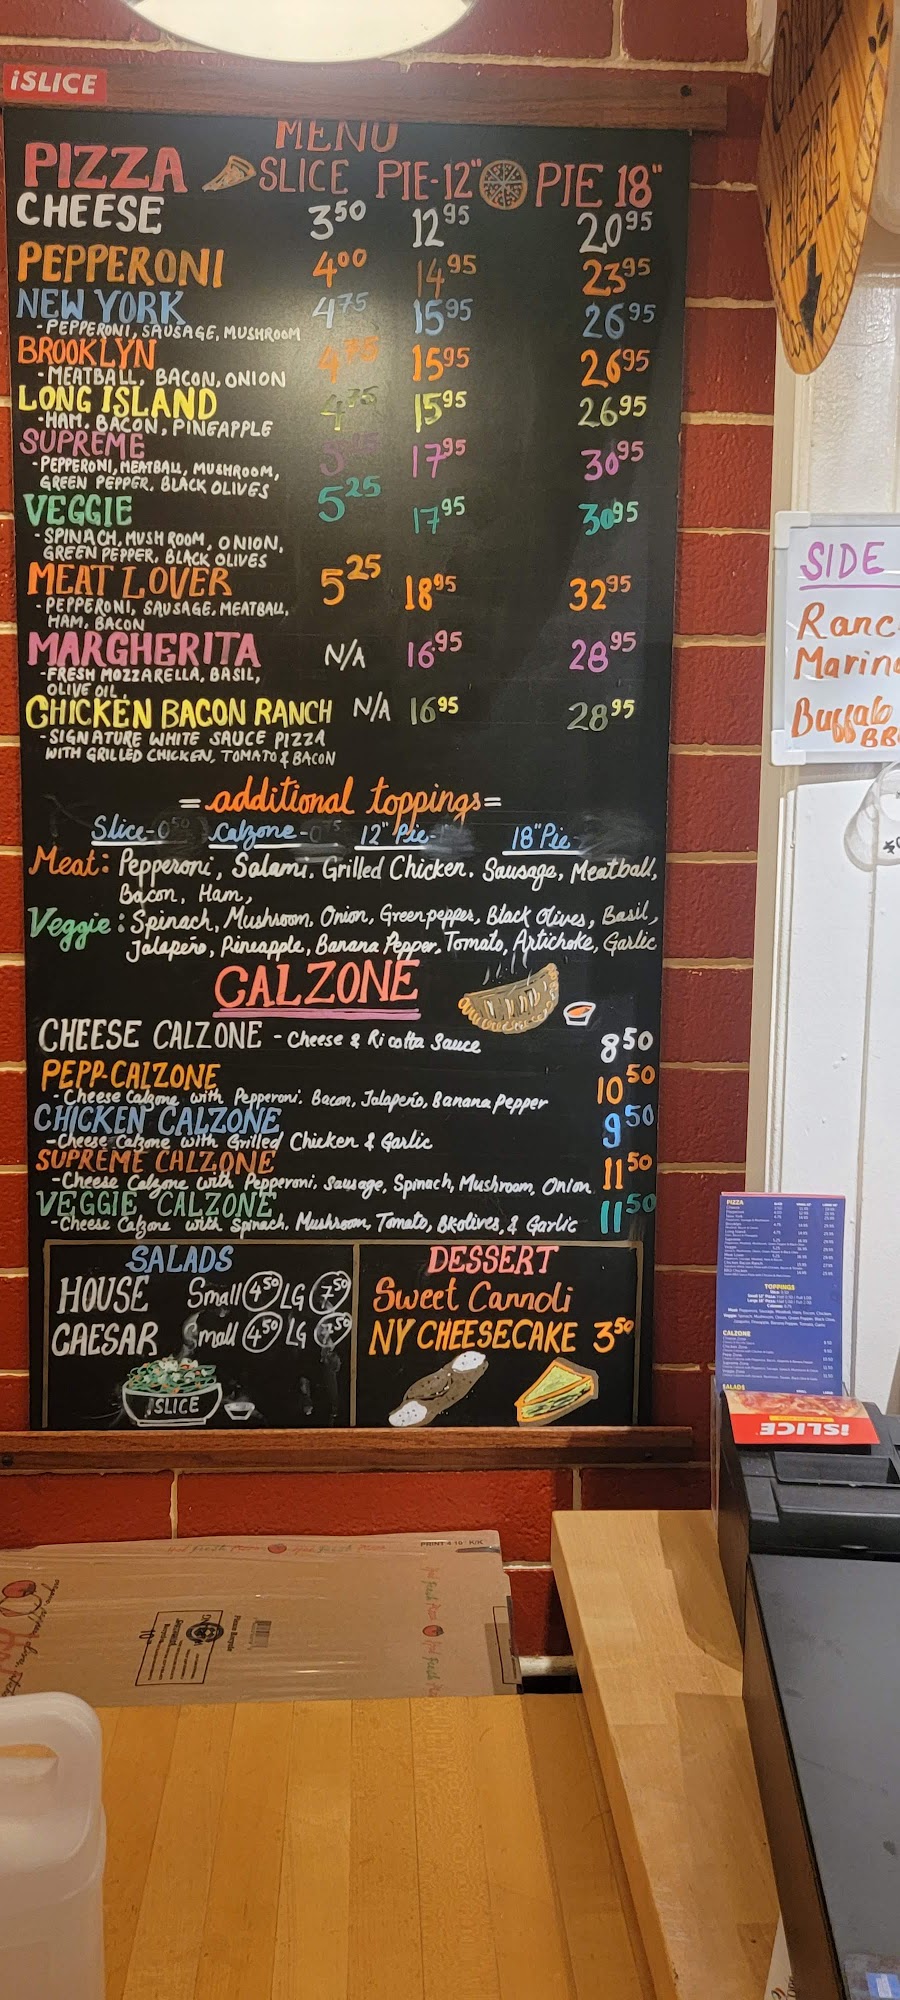 iSLICE
MENU
PIZZA SLICE PIE-12" PIE 18"
CHEESE 3⁵⁰ 12⁹⁵ 20⁹⁵
PEPPERONI 4⁰⁰ 14⁹⁵ 23⁹⁵
NEW YORK 4⁷⁵ 15⁹⁵ 26⁹⁵
-PEPPERONI, SAUSAGE, MUSHROOM
BROOKLYN 4⁷⁵ 15⁹⁵ 26⁹⁵
-MEATBALL, BACON, ONION
LONG ISLAND 4⁷⁵ 15⁹⁵ 26⁹⁵
-HAM, BACON, PINEAPPLE
SUPREME 17⁹⁵ 30⁹⁵
-PEPPERONI, MEATBALL, MUSHROOM,
GREEN PEPPER, BLACK OLIVES
VEGGIE 5²⁵ 17⁹⁵ 30⁹⁵
-SPINACH, MUSHROOM, ONION,
GREEN PEPPER, BLACK OLIVES
MEAT LOVER 5²⁵ 18⁹⁵ 32⁹⁵
-PEPPERONI, SAUSAGE, MEATBALL,
HAM, BACON
MARGHERITA N/A 16⁹⁵ 28⁹⁵
-FRESH MOZZARELLA, BASIL,
OLIVE OIL
CHICKEN BACON RANCH N/A 16⁹⁵ 28⁹⁵
-SIGNATURE WHITE SAUCE PIZZA
WITH GRILLED CHICKEN, TOMATO & BACON
=additional toppings=
Slice-0⁵⁰ Calzone-0⁷⁵ 12" Pie- 18" Pie-
Meat: Pepperoni, Salami, Grilled Chicken, Sausage, Meatball,
Bacon, Ham,
Veggie: Spinach, Mushroom, Onion, Green pepper, Black Olives, Basil,
Jalapeño, Pineapple, Banana Pepper, Tomato, Artichoke, Garlic
CALZONE
CHEESE CALZONE - Cheese & Ricotta Sauce 8⁵⁰
PEPP-CALZONE 10⁵⁰
-Cheese Calzone with Pepperoni, Bacon, Jalapeño, Banana Pepper
CHICKEN CALZONE 9⁵⁰
-Cheese Calzone with Grilled Chicken & Garlic
SUPREME CALZONE 11⁵⁰
-Cheese Calzone with Pepperoni, Sausage, Spinach, Mushroom, Onion
VEGGIE CALZONE 11⁵⁰
-Cheese Calzone with Spinach, Mushroom, Tomato, Bk olives, & Garlic
SALADS
HOUSE Small 4⁵⁰ LG 7⁵⁰
CAESAR Small 4⁵⁰ LG 7⁵⁰
iSLICE
DESSERT
Sweet Cannoli
NY CHEESECAKE 3⁵⁰
HERE
SIDE
Ranc
Marina
Buffalo
BB
PIZZA
TOPPINGS
CALZONE
SALADS
iSLICE